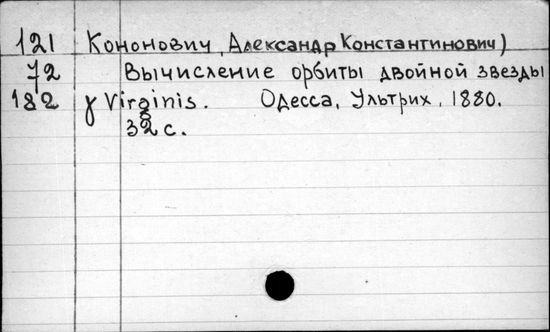 121 Кононович, Александр Константинович)
72 Вычисление орбиты двойной звезды
182 γ Virginis. Одесса, Ультрих, 1880.
32 с.